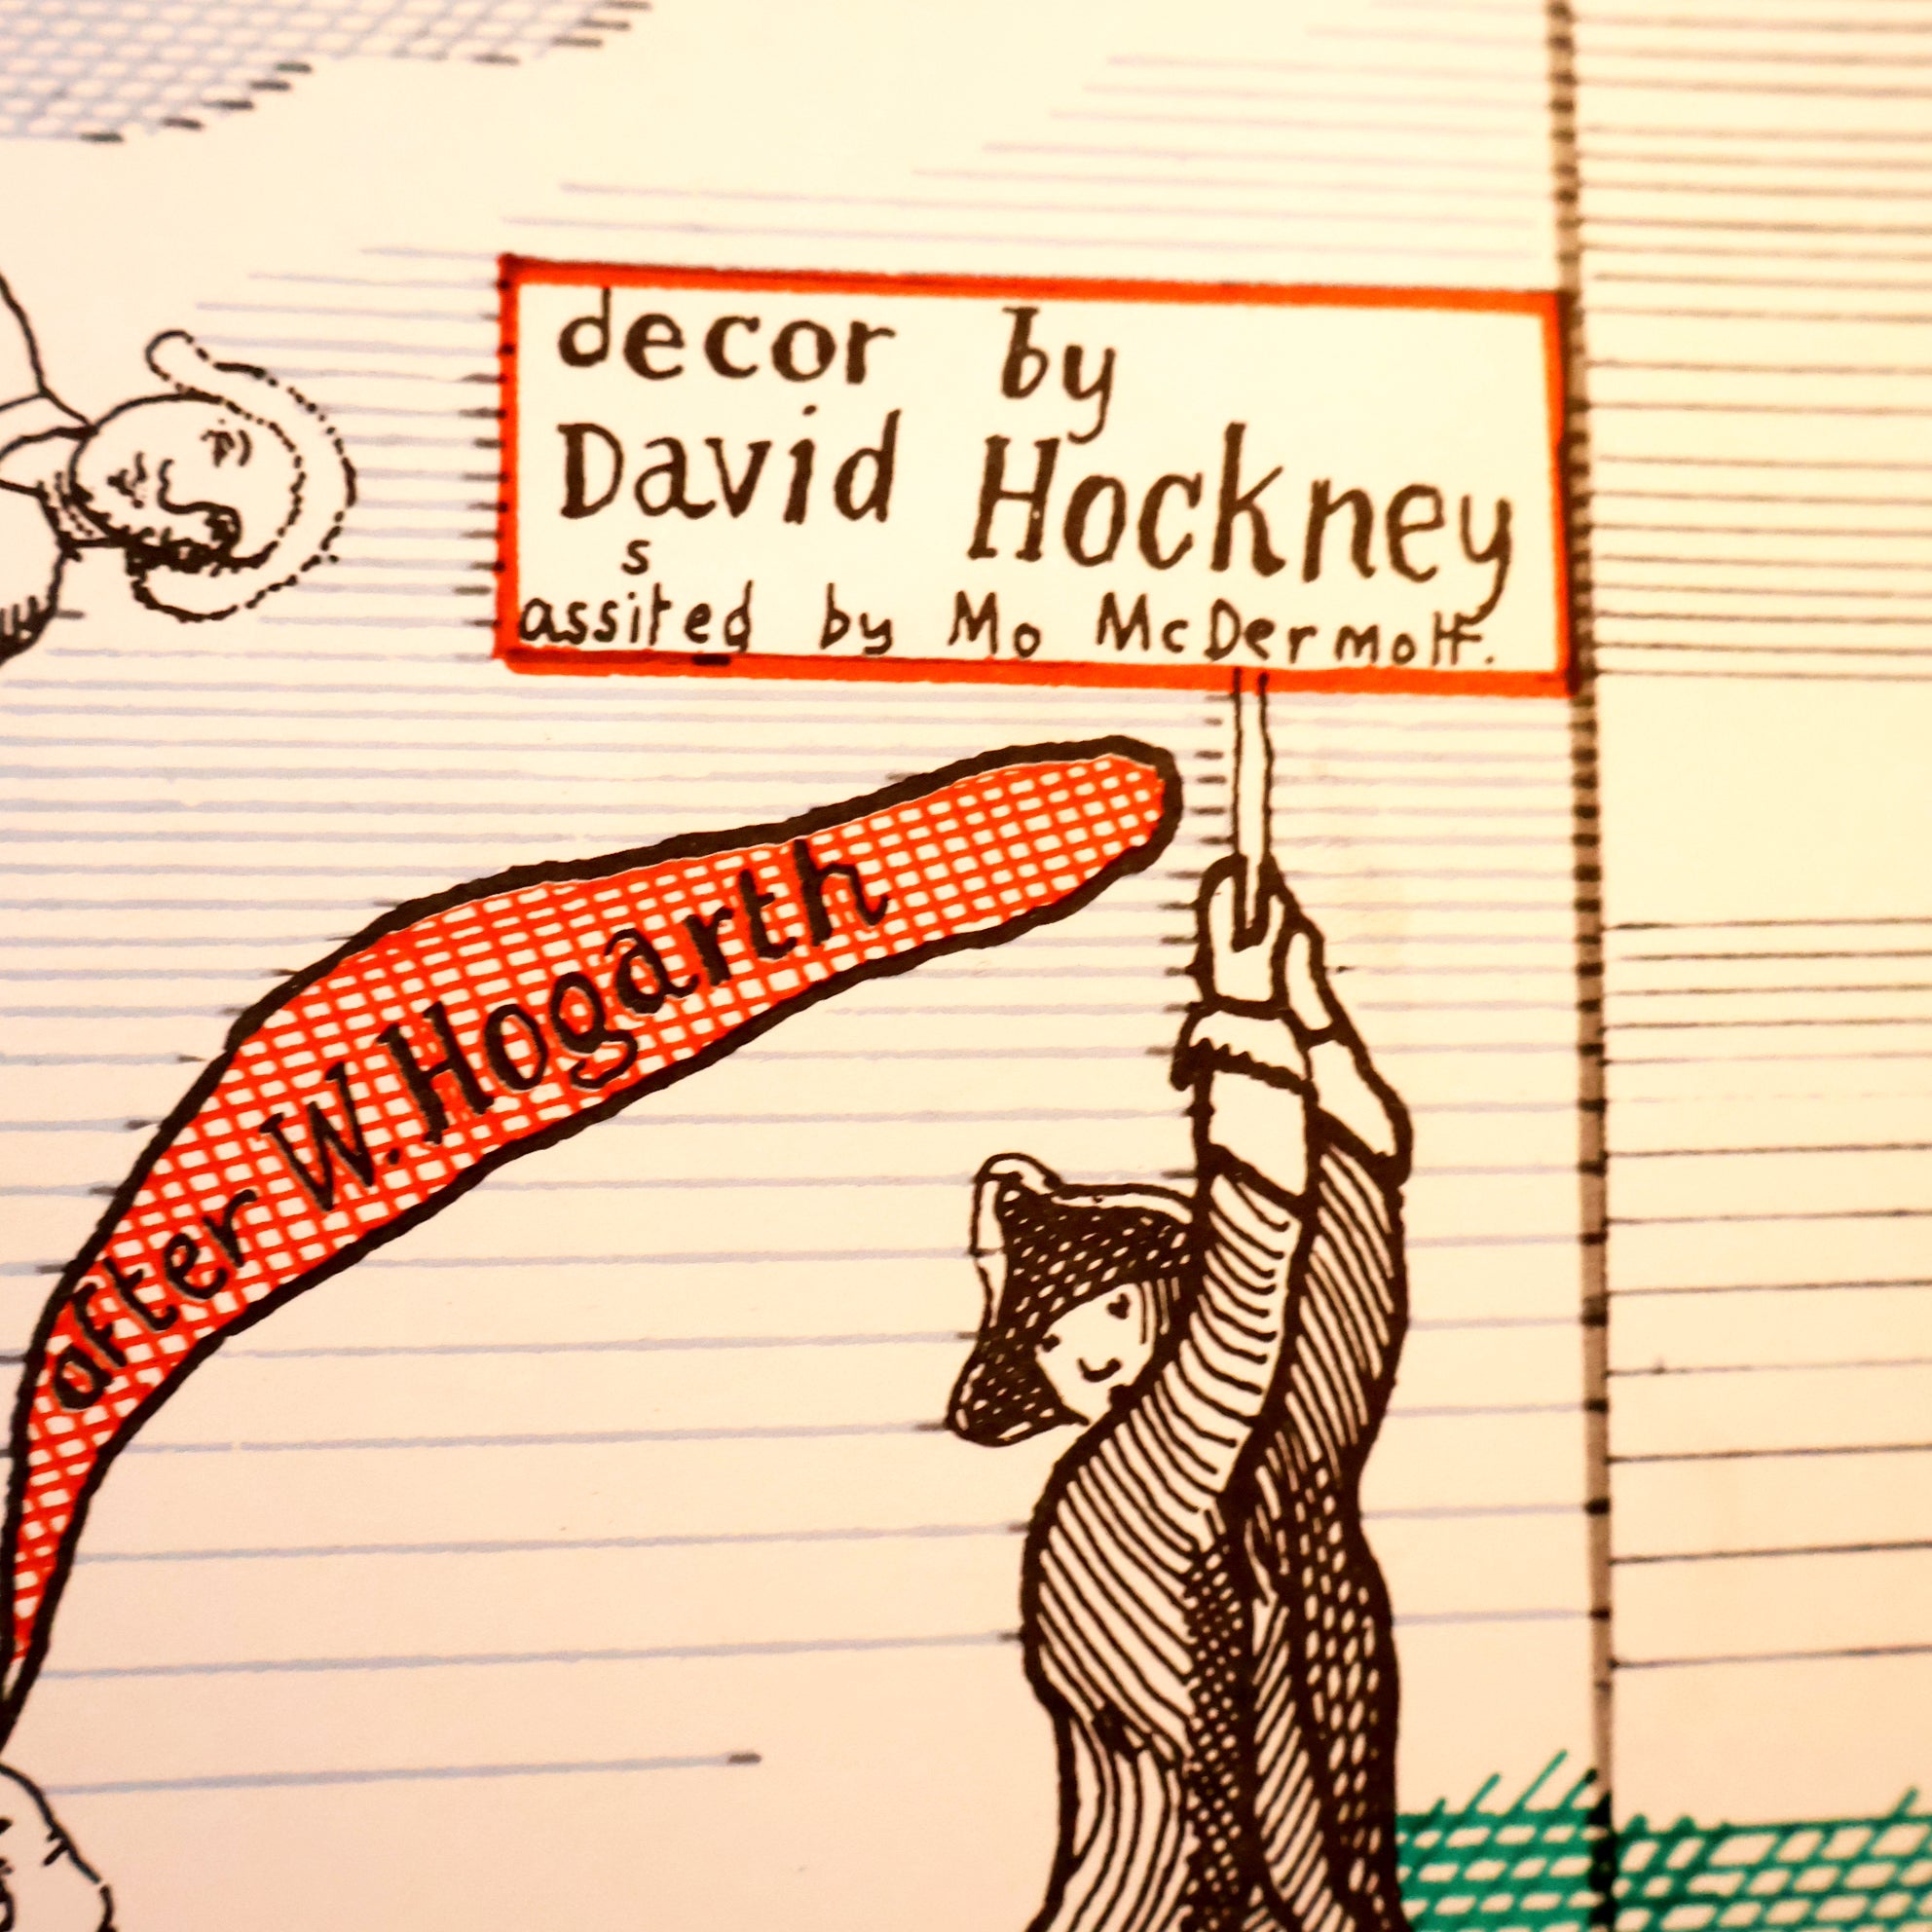 decor by
David Hockney
s
assited by Mo McDermott.
after W. Hogarth